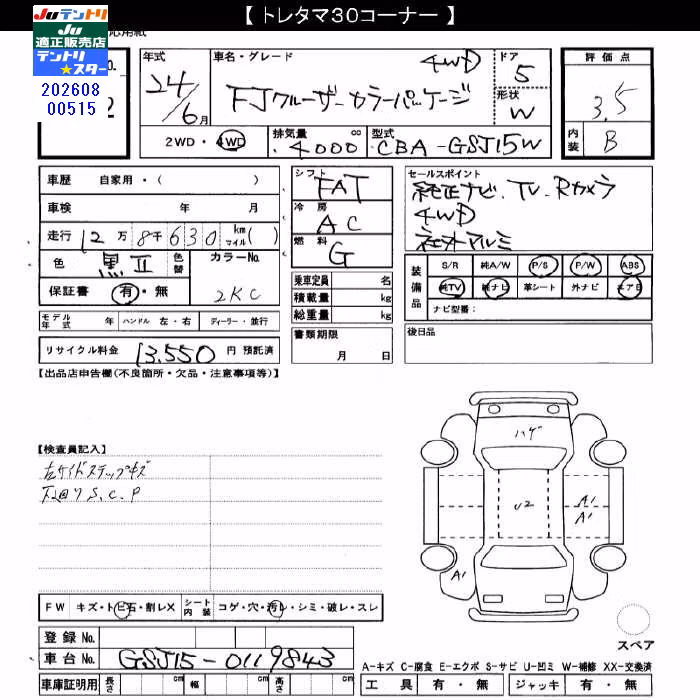 【 トレタマ30コーナー 】
JUテントリ
JU
適正販売店
テントリ
★スター
202608
00515
応用紙
年式 24/6月
車名・グレード 4WD
FJクルーザーカラーパッケージ
ドア 5
形状 W
評価点 3.5
内装 B
2WD・4WD 排気量 4000 cc 型式 CBA-GSJ15W
車歴 自家用・( )
車検 年 月
走行 12万8千630 km マイル( )
色 黒Ⅱ 色替 カラーNo. 2KC
保証書 有・無
モデル年式 年 ハンドル 左・右 ディーラー・並行
リサイクル料金 13,550 円 預託済
シフト FAT
冷房 AC
燃料 G
乗車定員 名
積載量 kg
総重量 kg
書類期限
月 日
セールスポイント
純正ナビ、TV、Rカメラ
4WD
社外アルミ
装備品 S/R 純A/W P/S P/W ABS
純TV 純ナビ 革シート 外ナビ エアB
ナビ型番:
後日品
【出品店申告欄(不良箇所・欠品・注意事項等)】
【検査員記入】
左サイドステップキズ
下廻り S、C、P
FW キズ・トビ石・割レX シート内装 コゲ・穴・汚レ・シミ・破レ・スレ
登録No.
車台No. GSJ15-0119843
車庫証明用 長さ cm 幅 cm 高さ cm
ハゲ
U2
A1
A1
A1
スペア
A-キズ C-腐食 E-エクボ S-サビ U-凹ミ W-補修 XX-交換済
工具 有・無 ジャッキ 有・無